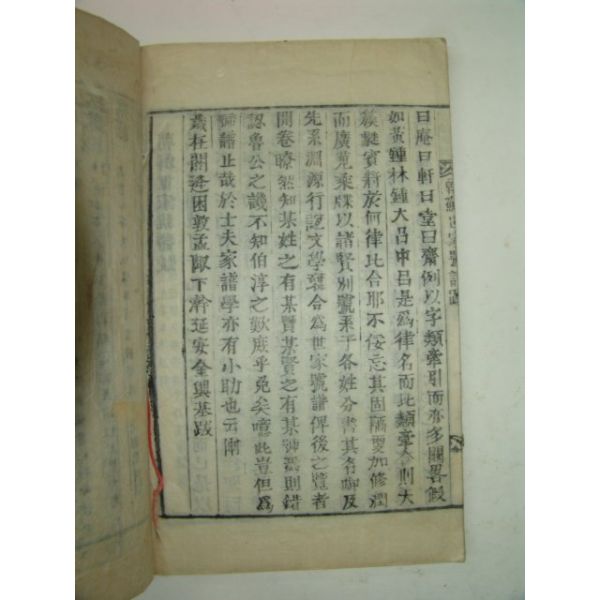 曰庵曰軒曰堂曰齋例以字類彙引而亦多闕畧假
如黃鍾林鍾大呂中呂是爲律名而比類彙合則大
簇蕤賓將於何律比合耶不佞忘其固陋更加修潤
而廣覓乘牒以諸賢別號系于各姓分書其名啣及
先系淵源行誼文學釐合爲世家號譜俾後之覽者
開卷瞭然知某姓之有某賢某賢之有某號
認魯公之譏不知伯淳之歎庶乎免矣噫此豈但爲
號譜止哉於士夫家譜學亦有小助也云爾
歲在閼逢困敦孟陬下澣延安金興基跋
號譜跋